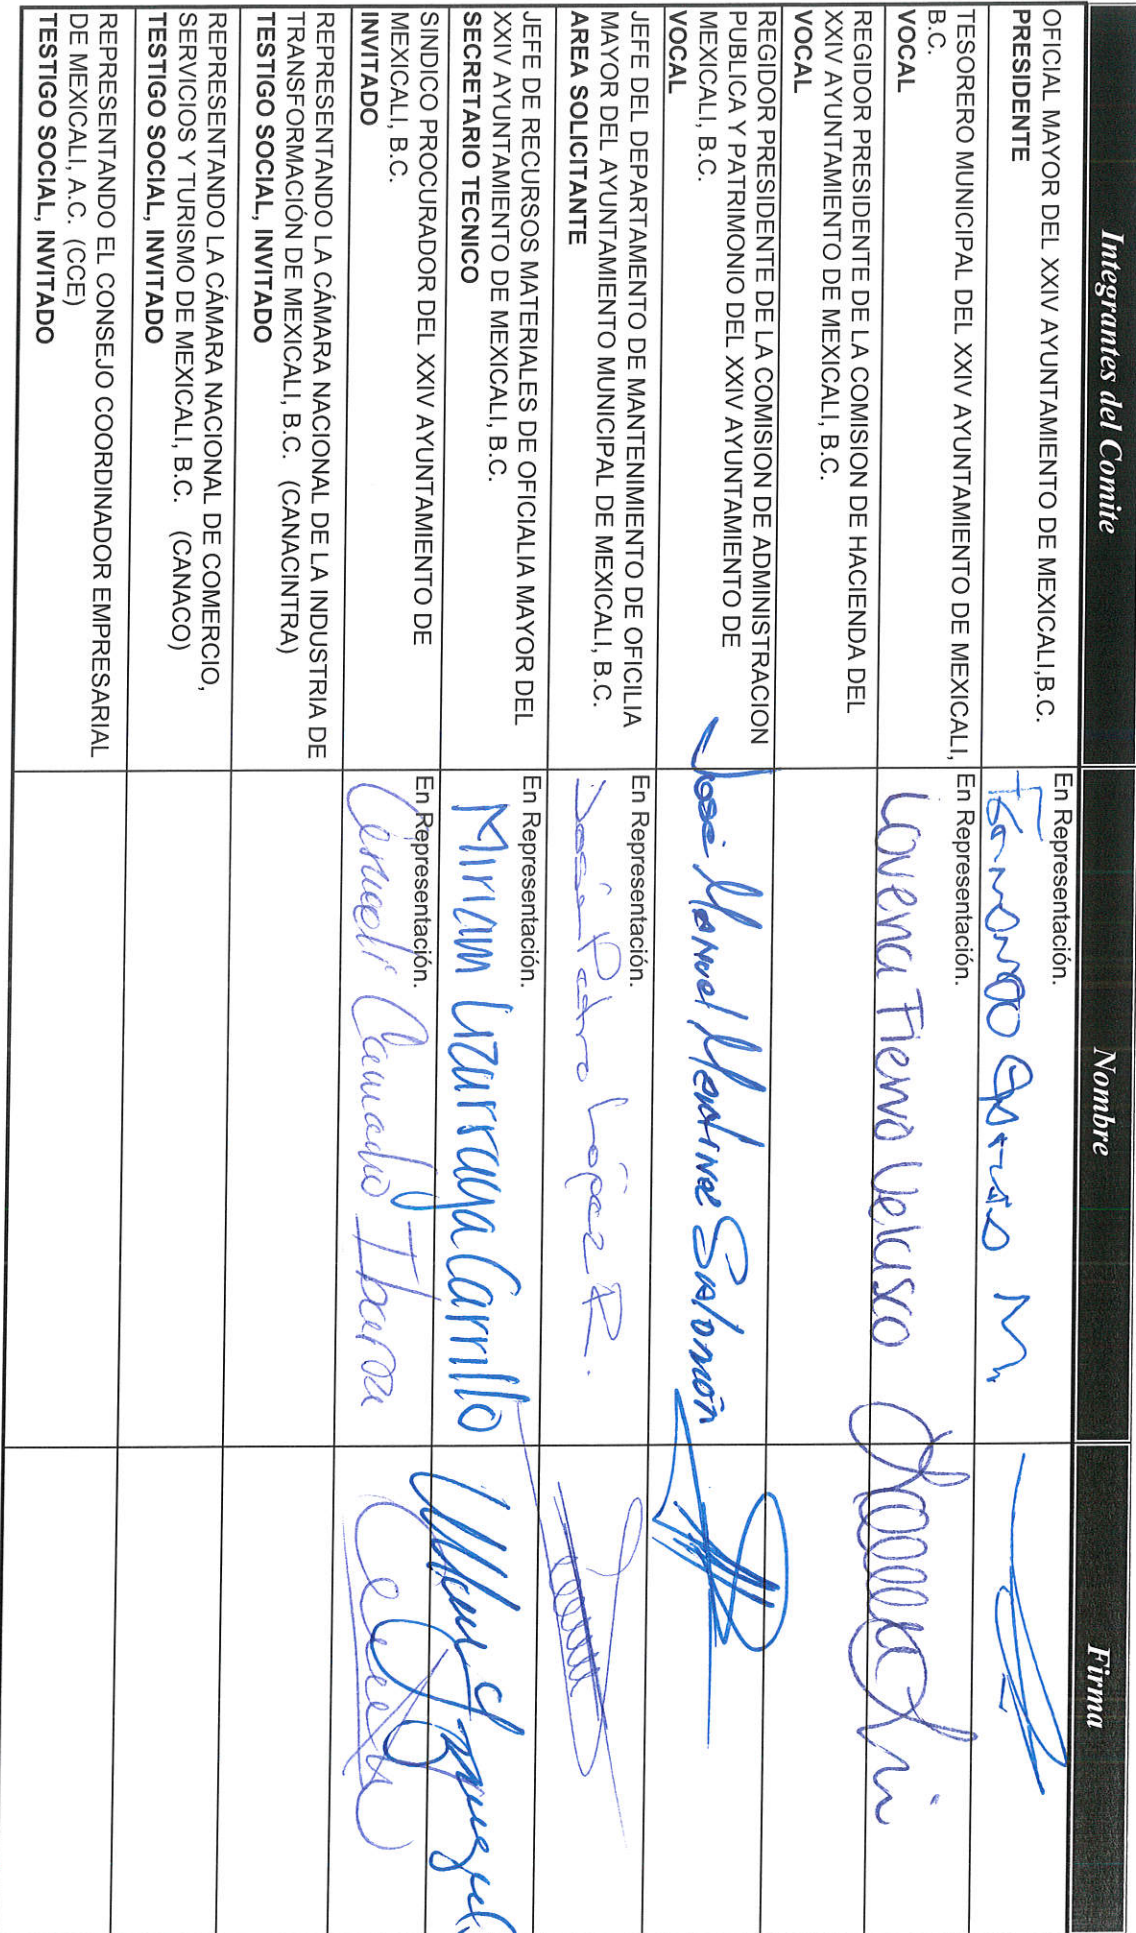 Integrantes del Comite Nombre Firma
OFICIAL MAYOR DEL XXIV AYUNTAMIENTO DE MEXICALI,B.C.
PRESIDENTE
En Representación.
M.
TESORERO MUNICIPAL DEL XXIV AYUNTAMIENTO DE MEXICALI,
B.C.
VOCAL
En Representación.
Lorena Fierro Velasco
REGIDOR PRESIDENTE DE LA COMISION DE HACIENDA DEL
XXIV AYUNTAMIENTO DE MEXICALI, B.C.
VOCAL
REGIDOR PRESIDENTE DE LA COMISION DE ADMINISTRACION
PUBLICA Y PATRIMONIO DEL XXIV AYUNTAMIENTO DE
MEXICALI, B.C.
VOCAL
José Manuel Martinez Salomón
JEFE DEL DEPARTAMENTO DE MANTENIMIENTO DE OFICILIA
MAYOR DEL AYUNTAMIENTO MUNICIPAL DE MEXICALI, B.C.
AREA SOLICITANTE
En Representación.
López R.
JEFE DE RECURSOS MATERIALES DE OFICIALIA MAYOR DEL
XXIV AYUNTAMIENTO DE MEXICALI, B.C.
SECRETARIO TECNICO
En Representación.
Miriam Lizarraga Carrillo
SINDICO PROCURADOR DEL XXIV AYUNTAMIENTO DE
MEXICALI, B.C.
INVITADO
En Representación.
Camacho Ibarra
REPRESENTANDO LA CÁMARA NACIONAL DE LA INDUSTRIA DE
TRANSFORMACIÓN DE MEXICALI, B.C. (CANACINTRA)
TESTIGO SOCIAL, INVITADO
REPRESENTANDO LA CÁMARA NACIONAL DE COMERCIO,
SERVICIOS Y TURISMO DE MEXICALI, B.C. (CANACO)
TESTIGO SOCIAL, INVITADO
REPRESENTANDO EL CONSEJO COORDINADOR EMPRESARIAL
DE MEXICALI, A.C. (CCE)
TESTIGO SOCIAL, INVITADO